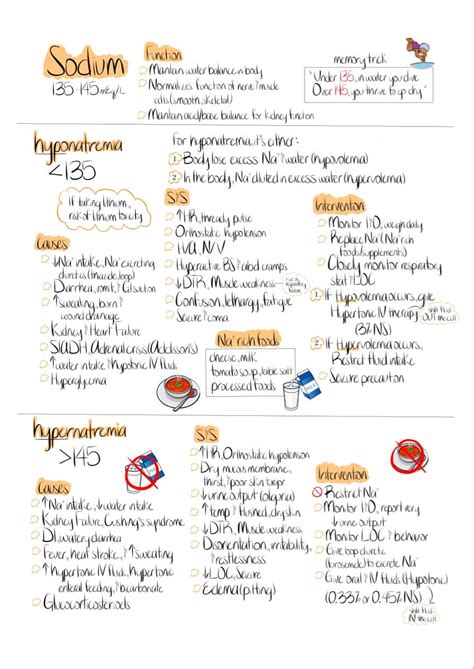 Sodium
135-145 mEq/L
Function
Maintain water balance in body
Normalizes function of nerve & muscle
cells (smooth, skeletal)
Maintain acid/base balance for kidney function
memory trick
"Under 135, in water you dive
Over 145, you thrive to go dry"
hyponatremia
<135
If taking lithium,
risk of lithium toxicity
For hyponatremia, it's either:
1 Body lose excess Na & water (hypovolemia)
2 In the body, Na diluted in excess water (hypervolemia)
Causes
↓Na intake, Na excreting
diuretics (thiazide, loop)
Diarrhea, vomit, & GI suction
↑sweating, burn &
wound drainage
Kidney & Heart Failure
SIADH, Adrenal crisis (Addison's)
↑water intake & hypotonic IV fluids
Hyperglycemia
S/S
↑HR, thready pulse
Orthostatic hypotension
H/A, N/V
Hyperactive BS & abd cramps
↓DTR, Muscle weakness
risk of
respiratory
failure
Confusion, lethargy, fatigue
Seizure & coma
Na rich foods
cheese, milk
tomato soup, table salt
processed foods
Intervention
Monitor I&O, weigh daily
Replace Na (Na rich
foods/supplements)
Closely monitor respiratory
stat & LOC
1 If Hypovolemia occurs, give
Hypertonic IV therapy
(3% NS)
shift fluid
OUT the cell
2 If Hypervolemia occurs,
Restrict fluid intake
Seizure precaution
hypernatremia
>145
Causes
↑Na intake, ↓water intake
Kidney Failure, Cushing's syndrome
DI, watery diarrhea
Fever, heat stroke, & ↑sweating
↑hypertonic IV fluids, hypertonic
enteral feeding, & bicarbonate
Glucocorticosteroids
S/S
↑HR, Orthostatic hypotension
Dry mucous membrane,
thirst, & poor skin turgor
↓urine output (oliguria)
↑temp & flushed, dry skin
↓DTR, Muscle weakness
Disorientation, irritability,
& restlessness
↓LOC, Seizure
Edema (pitting)
Intervention
Restrict Na
Monitor I&O, report very
↓urine output
Monitor LOC & behavior
Give loop diuretic
(furosemide) to excrete Na
Give oral & IV fluids (Hypotonic)
(0.33% or 0.45% NS)
shift fluid
IN the cell